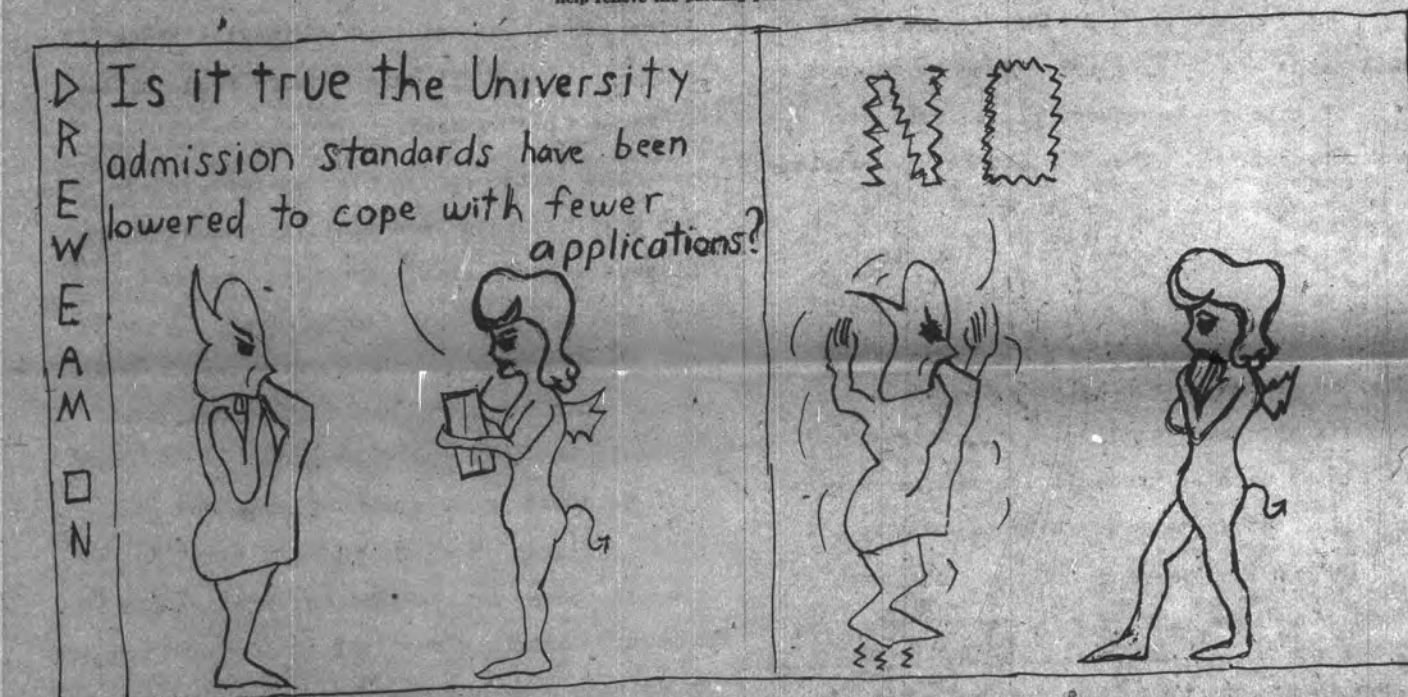 DREWEAM ON
Is it true the University
admission standards have been
lowered to cope with fewer
applications?
NO